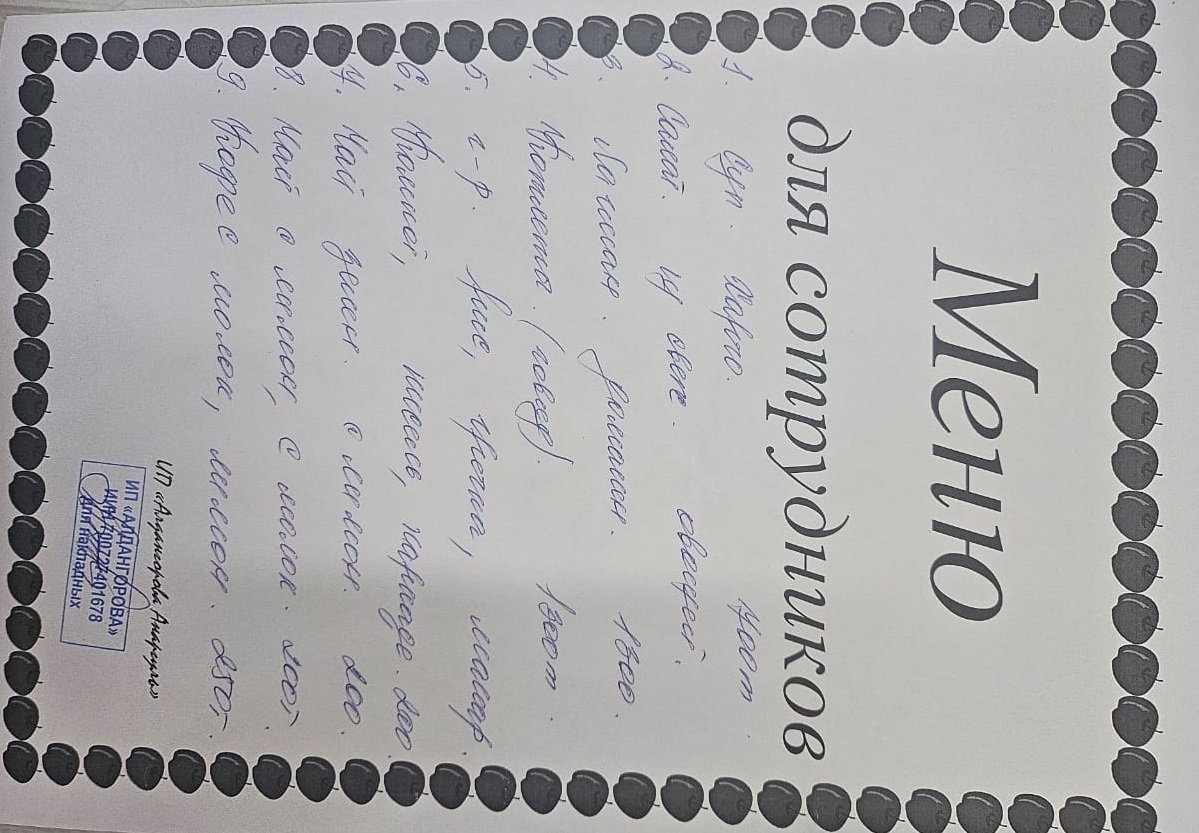 Меню
для сотрудников
1. Суп. Харчо. 700т
2. Салат. из свеж. овощей.
3. Лагман. домашн. 1300.
4. Котлета. (говяд). 1300т.
5. г-р. Рис, гречка, макар.
6. Компот, кисель, каркаде. 200
7. Чай зелен. с лимон. 200.
8. Чай с лимон, с молок. 200т.
9. Кофе с молок, лимон. 250т.
ИП «Алдангорова Анаргуль»
ИП «АЛДАНГОРОВА»
ИИН
для накладных